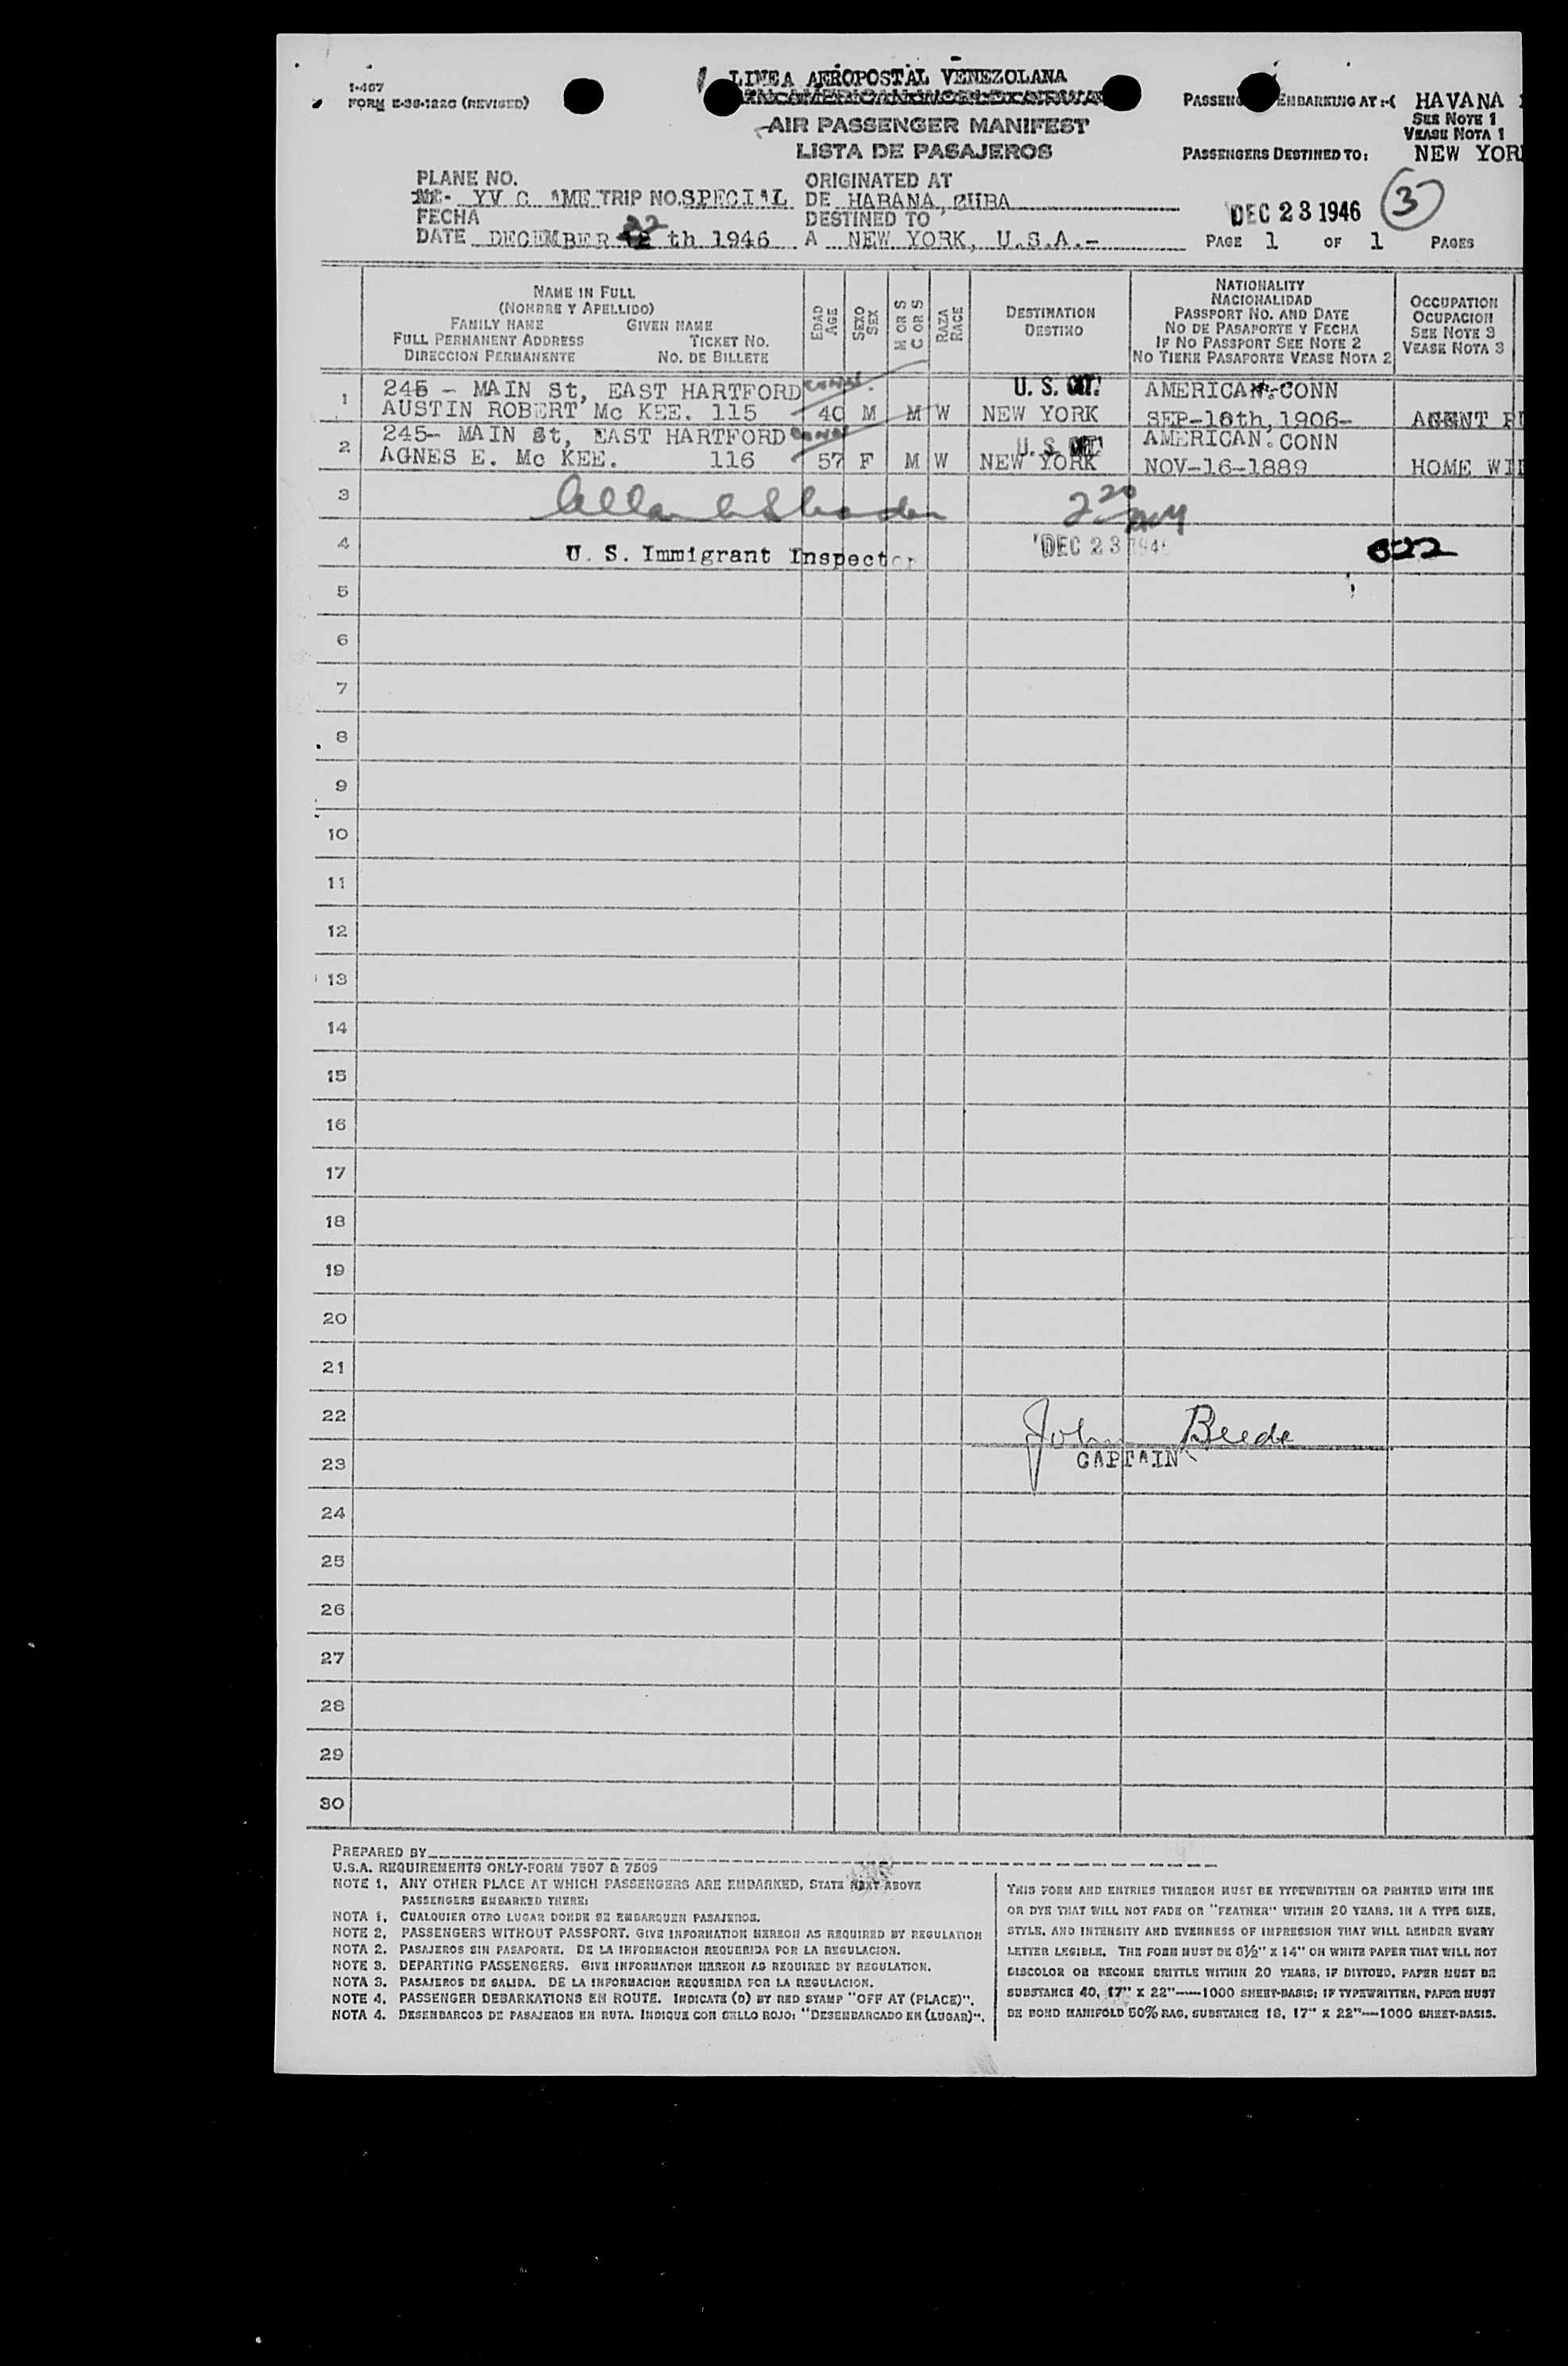 I-467
FORM E-36-122C (REVISED)
LINEA AEROPOSTAL VENEZOLANA
AIR PASSENGER MANIFEST
LISTA DE PASAJEROS
PASSENG EMBARKING AT :-( HAVANA
SEE NOTE 1
VEASE NOTA 1
PASSENGERS DESTINED TO: NEW YOR
PLANE NO. ORIGINATED AT
YV C AME TRIP NO. SPECIAL DE HABANA, CUBA
FECHA DESTINED TO
DATE DECEMBER 22 th 1946 A NEW YORK, U.S.A.-
DEC 23 1946 3
PAGE 1 OF 1 PAGES
NAME IN FULL
(NOMBRE Y APELLIDO)
FAMILY NAME GIVEN NAME
FULL PERMANENT ADDRESS TICKET NO.
DIRECCION PERMANENTE NO. DE BILLETE
EDAD
AGE
SEXO
SEX
M OR S
C OR S
RAZA
RACE
DESTINATION
DESTINO
NATIONALITY
NACIONALIDAD
PASSPORT NO. AND DATE
NO DE PASAPORTE Y FECHA
IF NO PASSPORT SEE NOTE 2
NO TIENE PASAPORTE VEASE NOTA 2
OCCUPATION
OCUPACION
SEE NOTE 3
VEASE NOTA 3
245 - MAIN St, EAST HARTFORD CONN. U. S. CIT. AMERICAN.-CONN
1 AUSTIN ROBERT Mc KEE. 115 40 M M W NEW YORK SEP-18th, 1906- AGENT
245- MAIN St, EAST HARTFORD CONN U. S. CIT. AMERICAN. CONN
2 AGNES E. Mc KEE. 116 57 F M W NEW YORK NOV-16-1889 HOME
3 2 20
4 U. S. Immigrant Inspector DEC 23 1946 622
5
6
7
8
9
10
11
12
13
14
15
16
17
18
19
20
21
22 John Beede
23 CAPTAIN
24
25
26
27
28
29
30
PREPARED BY
U.S.A. REQUIREMENTS ONLY-FORM 7507 & 7509
NOTE 1. ANY OTHER PLACE AT WHICH PASSENGERS ARE EMBARKED, STATE NEXT ABOVE
PASSENGERS EMBARKED THERE:
NOTA 1. CUALQUIER OTRO LUGAR DONDE SE EMBARQUEN PASAJEROS.
NOTE 2. PASSENGERS WITHOUT PASSPORT. GIVE INFORMATION HEREON AS REQUIRED BY REGULATION
NOTA 2. PASAJEROS SIN PASAPORTE. DE LA INFORMACION REQUERIDA POR LA REGULACION.
NOTE 3. DEPARTING PASSENGERS. GIVE INFORMATION HEREON AS REQUIRED BY REGULATION.
NOTA 3. PASAJEROS DE SALIDA. DE LA INFORMACION REQUERIDA POR LA REGULACION.
NOTE 4. PASSENGER DEBARKATIONS EN ROUTE. INDICATE (D) BY RED STAMP "OFF AT (PLACE)".
NOTA 4. DESEMBARCOS DE PASAJEROS EN RUTA. INDIQUE CON SELLO ROJO: "DESEMBARCADO EN (LUGAR)".
THIS FORM AND ENTRIES THEREON MUST BE TYPEWRITTEN OR PRINTED WITH INK
OR DYE THAT WILL NOT FADE OR "FEATHER" WITHIN 20 YEARS, IN A TYPE SIZE,
STYLE, AND INTENSITY AND EVENNESS OF IMPRESSION THAT WILL RENDER EVERY
LETTER LEGIBLE. THE FORM MUST BE 8½" X 14" ON WHITE PAPER THAT WILL NOT
DISCOLOR OR BECOME BRITTLE WITHIN 20 YEARS, IF DITTOED, PAPER MUST BE
SUBSTANCE 40, 17" X 22"-----1000 SHEET-BASIS; IF TYPEWRITTEN, PAPER MUST
BE BOND MANIFOLD 50% RAG, SUBSTANCE 16, 17" X 22"----1000 SHEET-BASIS.